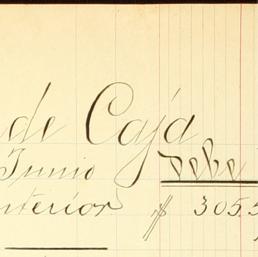 de Caja
Junio Debe
nterior $ 305.5